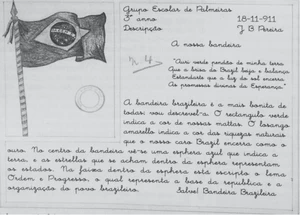 Grupo Escolar de Palmeiras
3º anno 18-11-911
Descripção J B Pereira
A nossa bandeira
"Auri verde pendão de minha terra
Que a brisa do Brasil beija e balança
Estandarte que a luz do sol encerra
As promessas divinas da Esperança."
A bandeira brazileira é a mais bonita de
todas: vou descrevel-a. O rectangulo verde
indica a cor de nossas mattas. O losango
amarello indica a cor das riquezas naturaes
que o nosso caro Brazil encerra como o
ouro. No centro da bandeira vê-se uma esphera azul que indica a
terra, e as estrellas que se acham dentro da esphera representam
os estados. Na faixa dentro da esphera está escripto o lema
Ordem e Progresso, o qual representa a base da republica e a
organização do povo brazileiro. Salve! Bandeira Brazileira